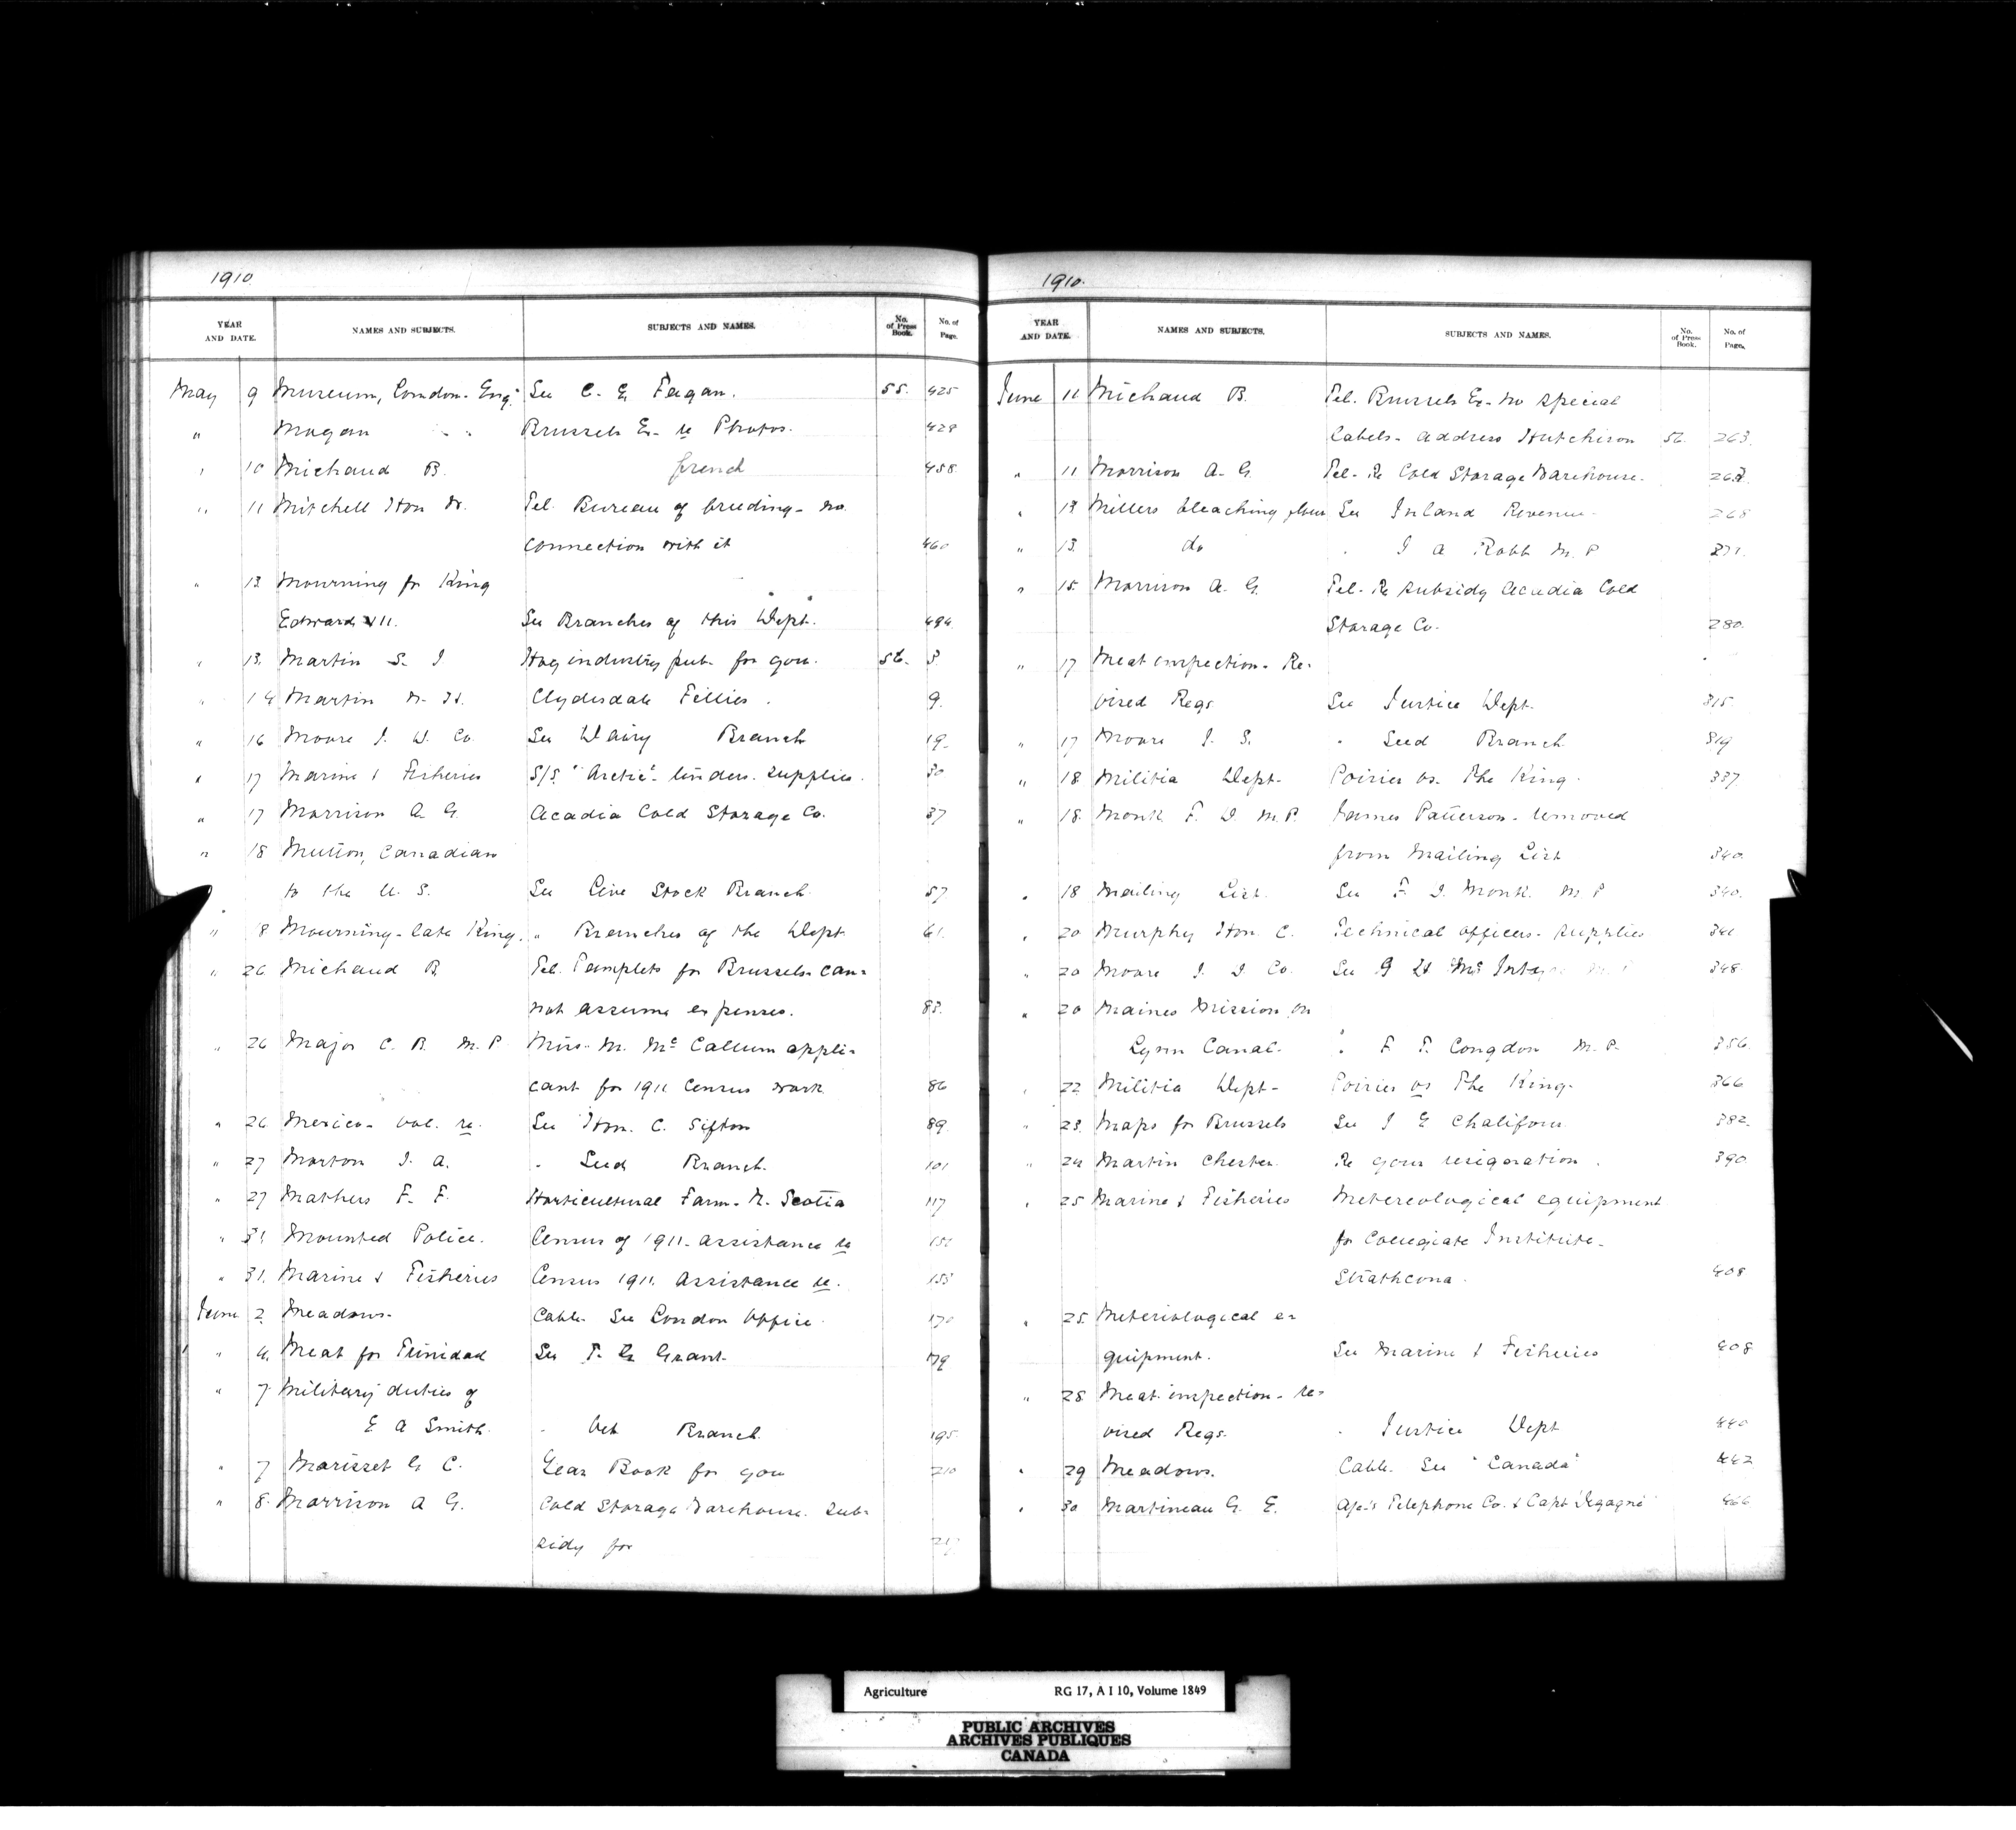 1910
YEAR AND DATE. NAMES AND SUBJECTS. SUBJECTS AND NAMES. No. of Press Book. No. of Page.
May 9 Museum, London. Eng. See C. E. Fagan. 55. 425
" Magan " " Brussels Ex- re Photos. 429
" 10 Michaud B. french 458
" 11 Mitchell Hon W. Tel. Bureau of breeding- no
connection with it 460
" 13. Mourning for King
Edward VII. See Branches of this Dept. 494
" 13. Martin S. J Hog industry pub. for you. 56. 3.
" 14 Martin W. H. Clydesdale Fillies. 9.
" 16 Moore J. D. Co. See Dairy Branch 19.
" 17 Marine & Fisheries S/S. "Arctic"- tinders. supplies. 30
" 17 Morrison A. G. Acadia Cold Storage Co. 37
" 18 Mutton, Canadian
to the U. S. See Live Stock Branch. 57
" 8 Mourning- late King. " Branches of the Dept. 61.
" 26 Michaud B. Tel. Pamplets for Brussels- can-
not assume expenses. 83.
" 26 Major C. B. M.P. Miss. M. McCallum appli-
cant for 1911 Census work 86
" 26 Mexico- vol. re. See Hon. C. Sifton 89.
" 27 Morton J. A. " Seed Branch. 101
" 27 Mathers F. F. Horticultural Farm. N. Scotia 117
" 31. Mounted Police. Census of 1911- assistance re
" 31. Marine & Fisheries Census 1911. Assistance re. 153
June 2. Meadows- Cable. See London Office. 170
" 4. Meat for Trinidad See T. G. Grant. 179
" 7 Military duties of
E A Smith. " Vet Branch. 195
" 7 Marisset G C. Year Book for you 210
" 8. Morrison A G. Cold Storage Warehouse. Sub-
sidy for
1910.
YEAR AND DATE. NAMES AND SUBJECTS. SUBJECTS AND NAMES. No. of Press Book. No. of Page.
June 11 Michaud B. Tel. Brussels Ex- no special
labels- address Hutchison 56. 263.
" 11 Morrison A. G. Tel- Re Cold Storage Warehouse.
" 13 Millers bleaching flour See Inland Revenue- 268
" 13. do " J A Robb M. P 271.
" 15. Morrison A. G. Tel- Re subsidy Acadia Cold
Storage Co. 280.
" 17 Meat inspection- Re-
vised Regs. See Justice Dept. 315.
" 17 Moore J. S. " Seed Branch 319
" 18 Militia Dept- Poirier vs. The King. 337.
" 18. Monk F. D. M.P. James Patterson- removed
from Mailing List 340.
" 18 Mailing List. See F. D. Monk. M P 340.
" 20 Murphy Hon. C. Technical officers- supplies 341.
" 20 Moore J. D Co. See G H 348.
" 20 Maines Mission on
Lynn Canal. " F. T. Congdon M. P. 356.
" 22 Militia Dept- Poirier vs The King- 366
" 23. Maps for Brussels See J E Chalifour 382.
" 24 Martin Chester. Re your resignation. 390.
" 25 Marine & Fisheries Metereological equipment
for Collegiate Institute-
Strathcona. 408
" 25. Meteriological e-
quipment. See Marine & Fisheries 408
" 28 Meat inspection- re-
vised Regs. " Justice Dept 440
" 29 Meadows. Cable. See "Canada" 442
" 30 Martineau G. E. Telephone Co. & Capt 466
Agriculture RG 17, A I 10, Volume 1849
PUBLIC ARCHIVES
ARCHIVES PUBLIQUES
CANADA